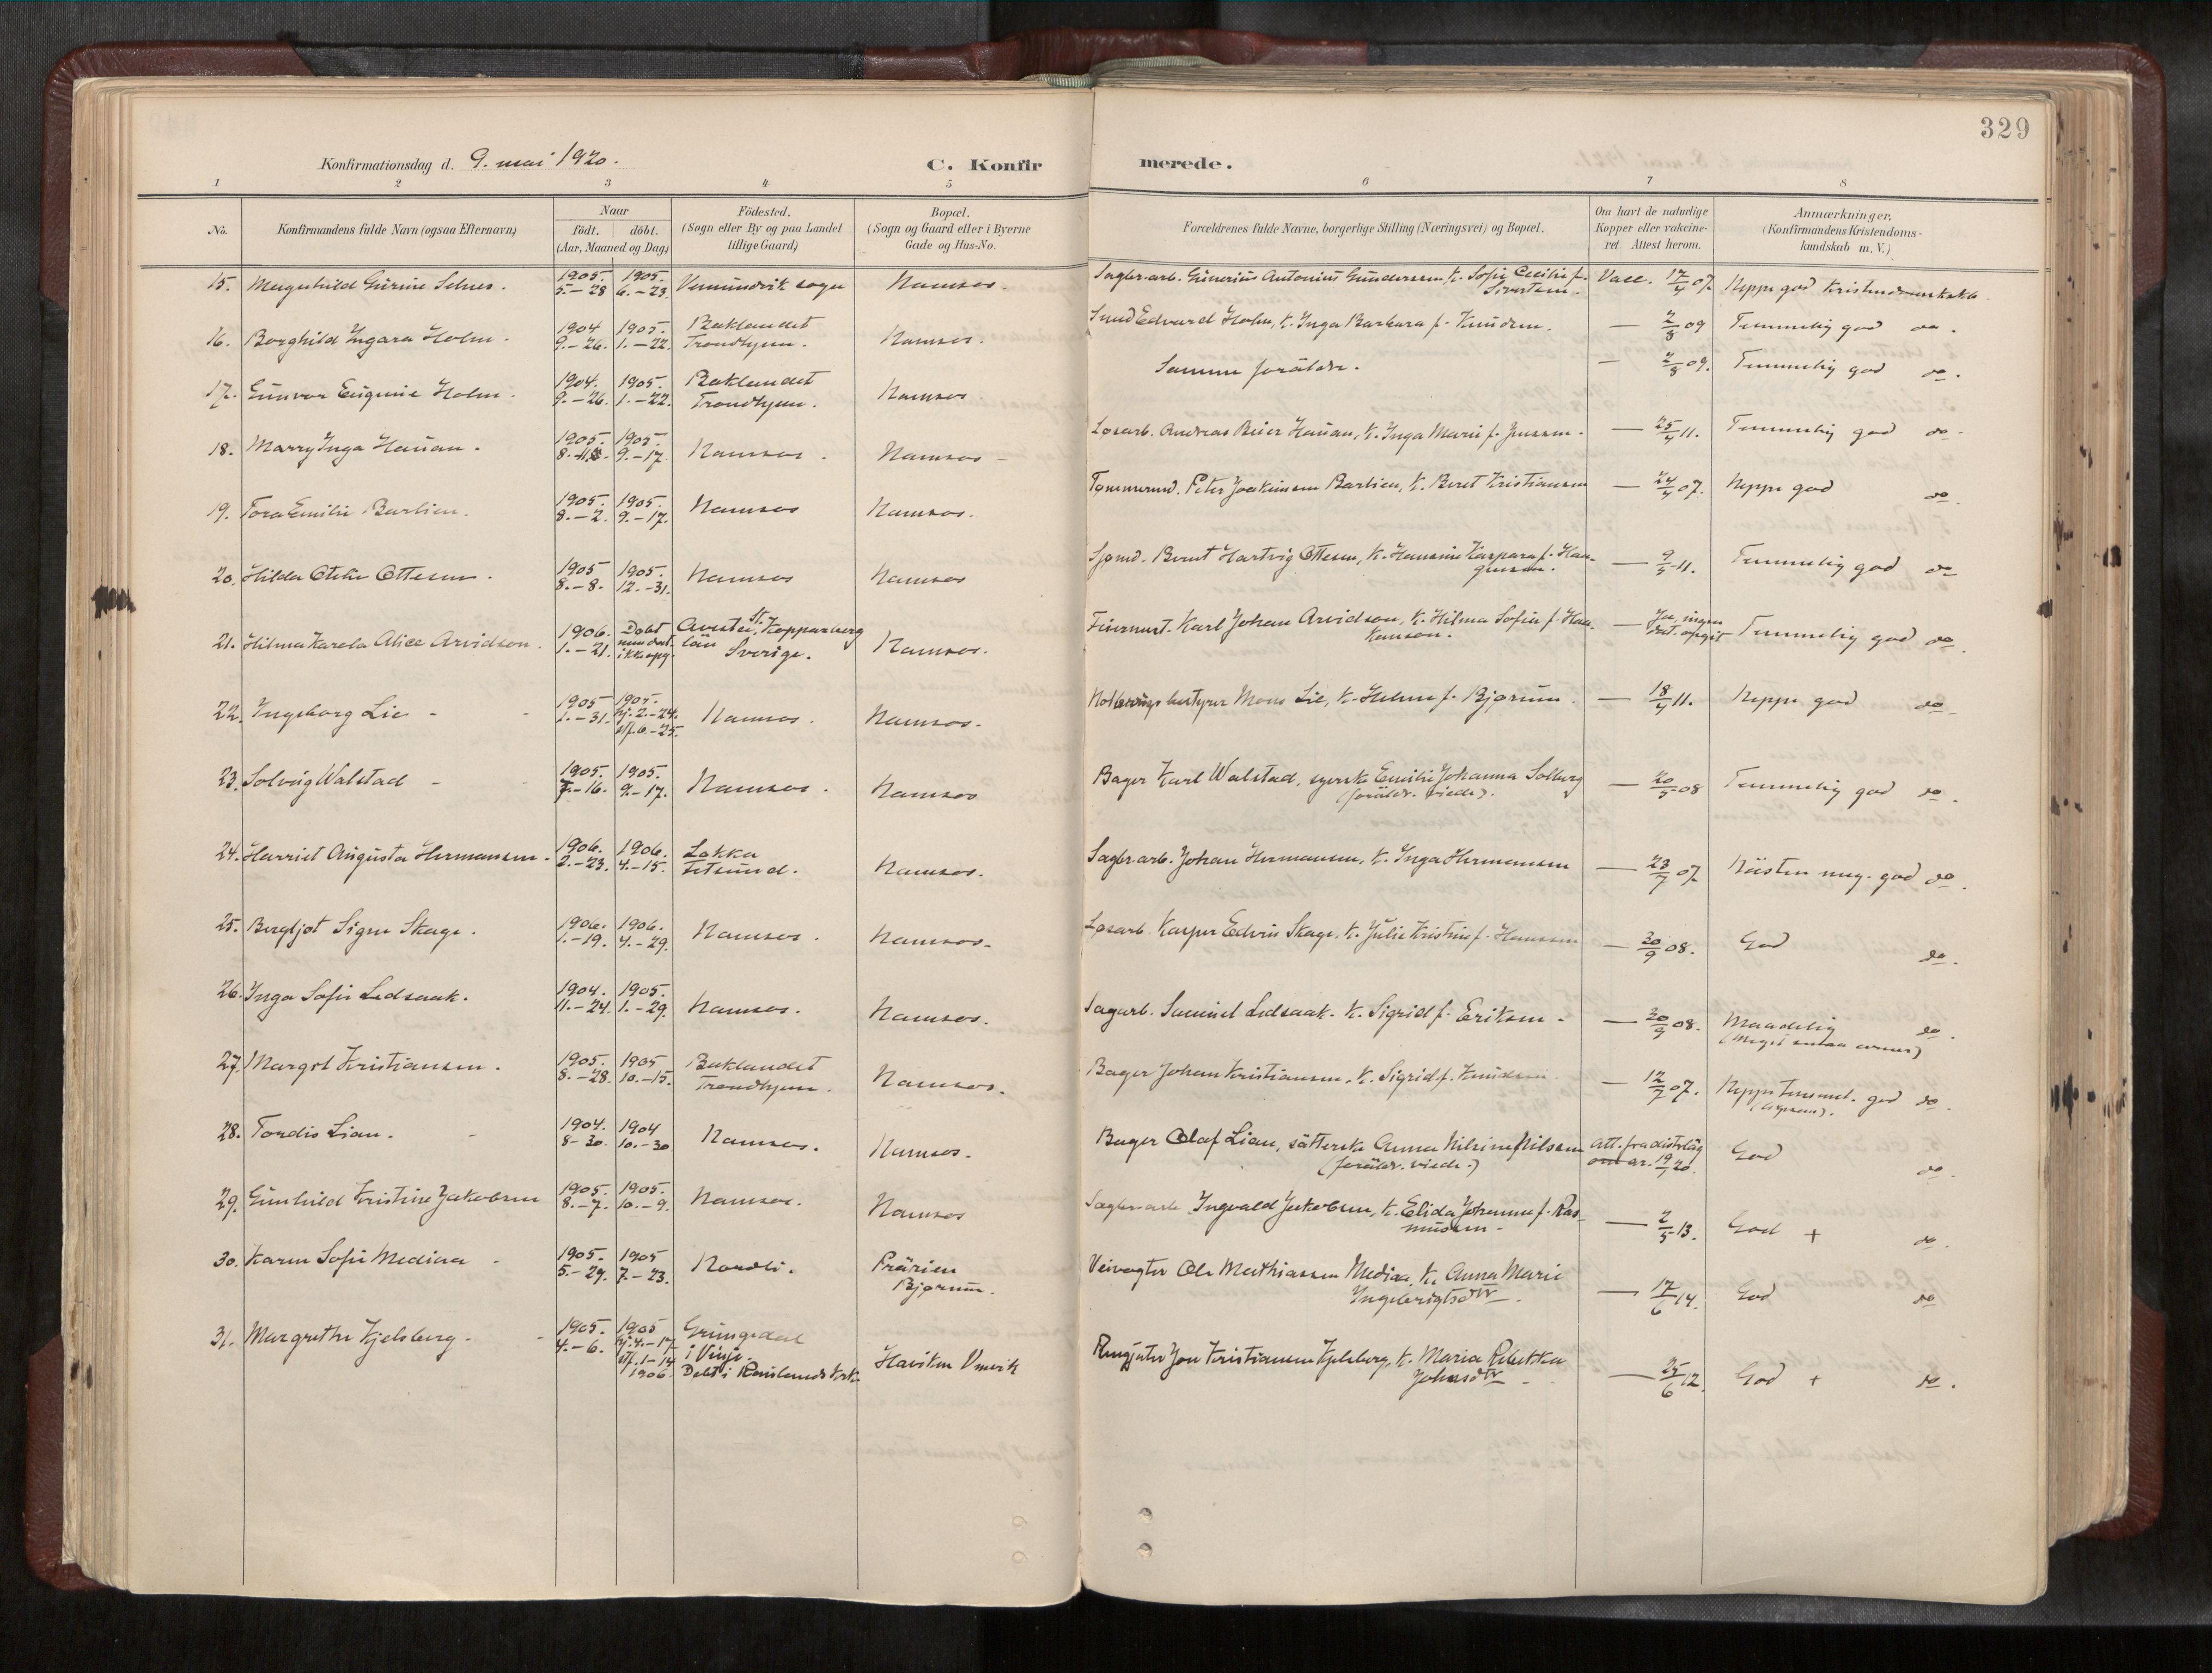 329
Konfirmationsdag d. 9. mai 1920.
C. Konfirmerede.
1 2 3 4 5 6 7 8
No.
Konfirmandens fulde Navn (ogsaa Efternavn)
Naar
födt. döbt.
(Aar, Maaned og Dag)
Födested.
(Sogn eller By og paa Landet
tillige Gaard)
Bopæl.
(Sogn og Gaard eller i Byerne
Gade og Hus-No.
Forældrenes fulde Navne, borgerlige Stilling (Næringsvei) og Bopæl.
Om havt de naturlige
Kopper eller vakcine-
ret. Attest herom.
Anmærkninger.
(Konfirmandens Kristendoms-
kundskab m. V.)
15. Magnhild Gurine Selnes. 1905. 5.-28 1905. 6.-23. Vemundvik sogn Namsos. Sagbr.arb. Gunerius Antonius Gundersen, K. Sofie Cecilie f. Sivertsen. Vacc. 17/4 07. Neppe god Kristendomskskb.
16. Borghild Ingara Holm. 1904 9.-26. 1905. 1.-22. Baklandet Trondhjem. Namsos. Smed Edvard Holm, K. Inga Barbara f. Knudsen. — 2/8 09 Temmelig god do.
17. Gunvor Eugenie Holm. 1904. 9.-26. 1905. 1.-22. Baklandet Trondhjem. Namsos. Samme forældre. — 2/8 09. Temmelig god do.
18. Marry Inga Hauan. 1905. 8.- 1905. 9.-17. Namsos. Namsos - Løsarb. Andreas Beier Hauan, K. Inga Marie f. Jenssen. — 25/4 11. Temmelig god do.
19. Tora Emilie Barlien. 1905. 8.-2. 1905. 9.-17. Namsos Namsos. Tømmermd. Peter Joakimsen Barlien, K. Beret Kristiansen — 24/4 07. Neppe god do.
20. Hilda Otelie Ottesen. 1905 8.-8. 1905. 12.-31. Namsos Namsos Sjømd. Bernt Hartvig Ottesen, K. Hansine Kaspara f. Haagensen. — 9/5 11. Temmelig god do
21. Hilma Karola Alice Arvidson. 1906. 1.-21. Døbt men dat. ikke opg. Avesta, St. Kopparberg län Sverige. Namsos. Karl Johan Arvidson, K. Hilma Sofia f. Haakanson. — Ja, ingen dat. opgit Temmelig god do.
22. Ingeborg Lie - 1905 1.-31. 1905. hj. 2.-24. stf. 6.-25. Namsos. Namsos. Mons Lie, K. Helene f. Bjørum. — 18/4 11. Neppe god do
23. Solveig Walstad - 1905. 7.-16. 1905. 9.-17. Namsos. Namsos Bager Karl Walstad, syerske Emilie Johanna Solberg (forældr. viede). — 20/5 08 Temmelig god do.
24. Harriet Augusta Hermansen. 1906. 2.-23. 1906. 4.-15. Løkka Fetsund. Namsos. Sagbr.arb. Johan Hermansen, K. Inga Hermansen — 23/7 07. Næsten meg. god do.
25. Bergljot Signe Skage. 1906. 1.-19. 1906. 4.-29. Namsos. Namsos. Løsarb. Kasper Edvin Skage, K. Julie Kristine f. Hanssen — 20/9 08. God do.
26. Inga Sofie Ledsaak. 1904. 11.-24. 1905. 1.-29. Namsos. Namsos. Sagarb. Samuel Ledsaak. K. Sigrid f. Eriksen. — 20/9 08. Maadelig do. (Meget smaa evner)
27. Margot Kristiansen. 1905. 8.-28. 1905 10.-15. Baklandet Trondhjem. Namsos. Bager Johan Kristiansen, K. Sigrid f. Knudsen. — 12/7 07. Neppe temmel. god do.
28. Tordis Lian. - 1904. 8-30. 1904 10.-30 Namsos. Namsos. Bager Olaf Lian, sätterske Anna Nilsine Nilssen (forældr. viede.) Att. fra distr.læg 19/1 20. God do.
29. Gunhild Kristine Jakobsen 1905. 8.-7. 1905. 10.-9. Namsos. Namsos Sagbr.arb. Ingvald Jakobsen, K. Elida Johanna f. Rasmussen. — 2/5 13. God + do.
30. Karen Sofie Mediaa - 1905. 5.-29. 1905 7.-23. Nordli. Prärien Bjørum. Veivogter Ole Mathiassen Mediaa, K. Anna Marie Ingebrigtsdtr. — 17/6 14. God do
31. Margrethe Kjelsberg. - 1905. 4.-6. 1905 hj. 4.-17. stf. 1-14 1906. Grungedal i Vinje. Døbt i Rauland Kirk. Haviken Vmvik Jon Kristiansen Kjelsberg, K. Maria Rebekka Johnsdtr. — 25/6 12. God + do.